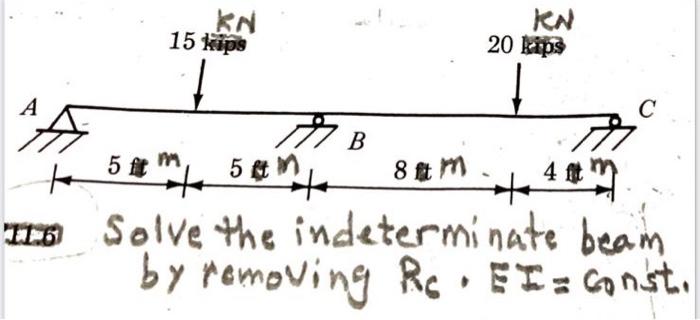 KN KN
15 kips 20 kips
A C
B
5 ft m 5 ft m 8 ft m 4 ft m
11.6 Solve the indeterminate beam
by removing Rc . EI = Const.